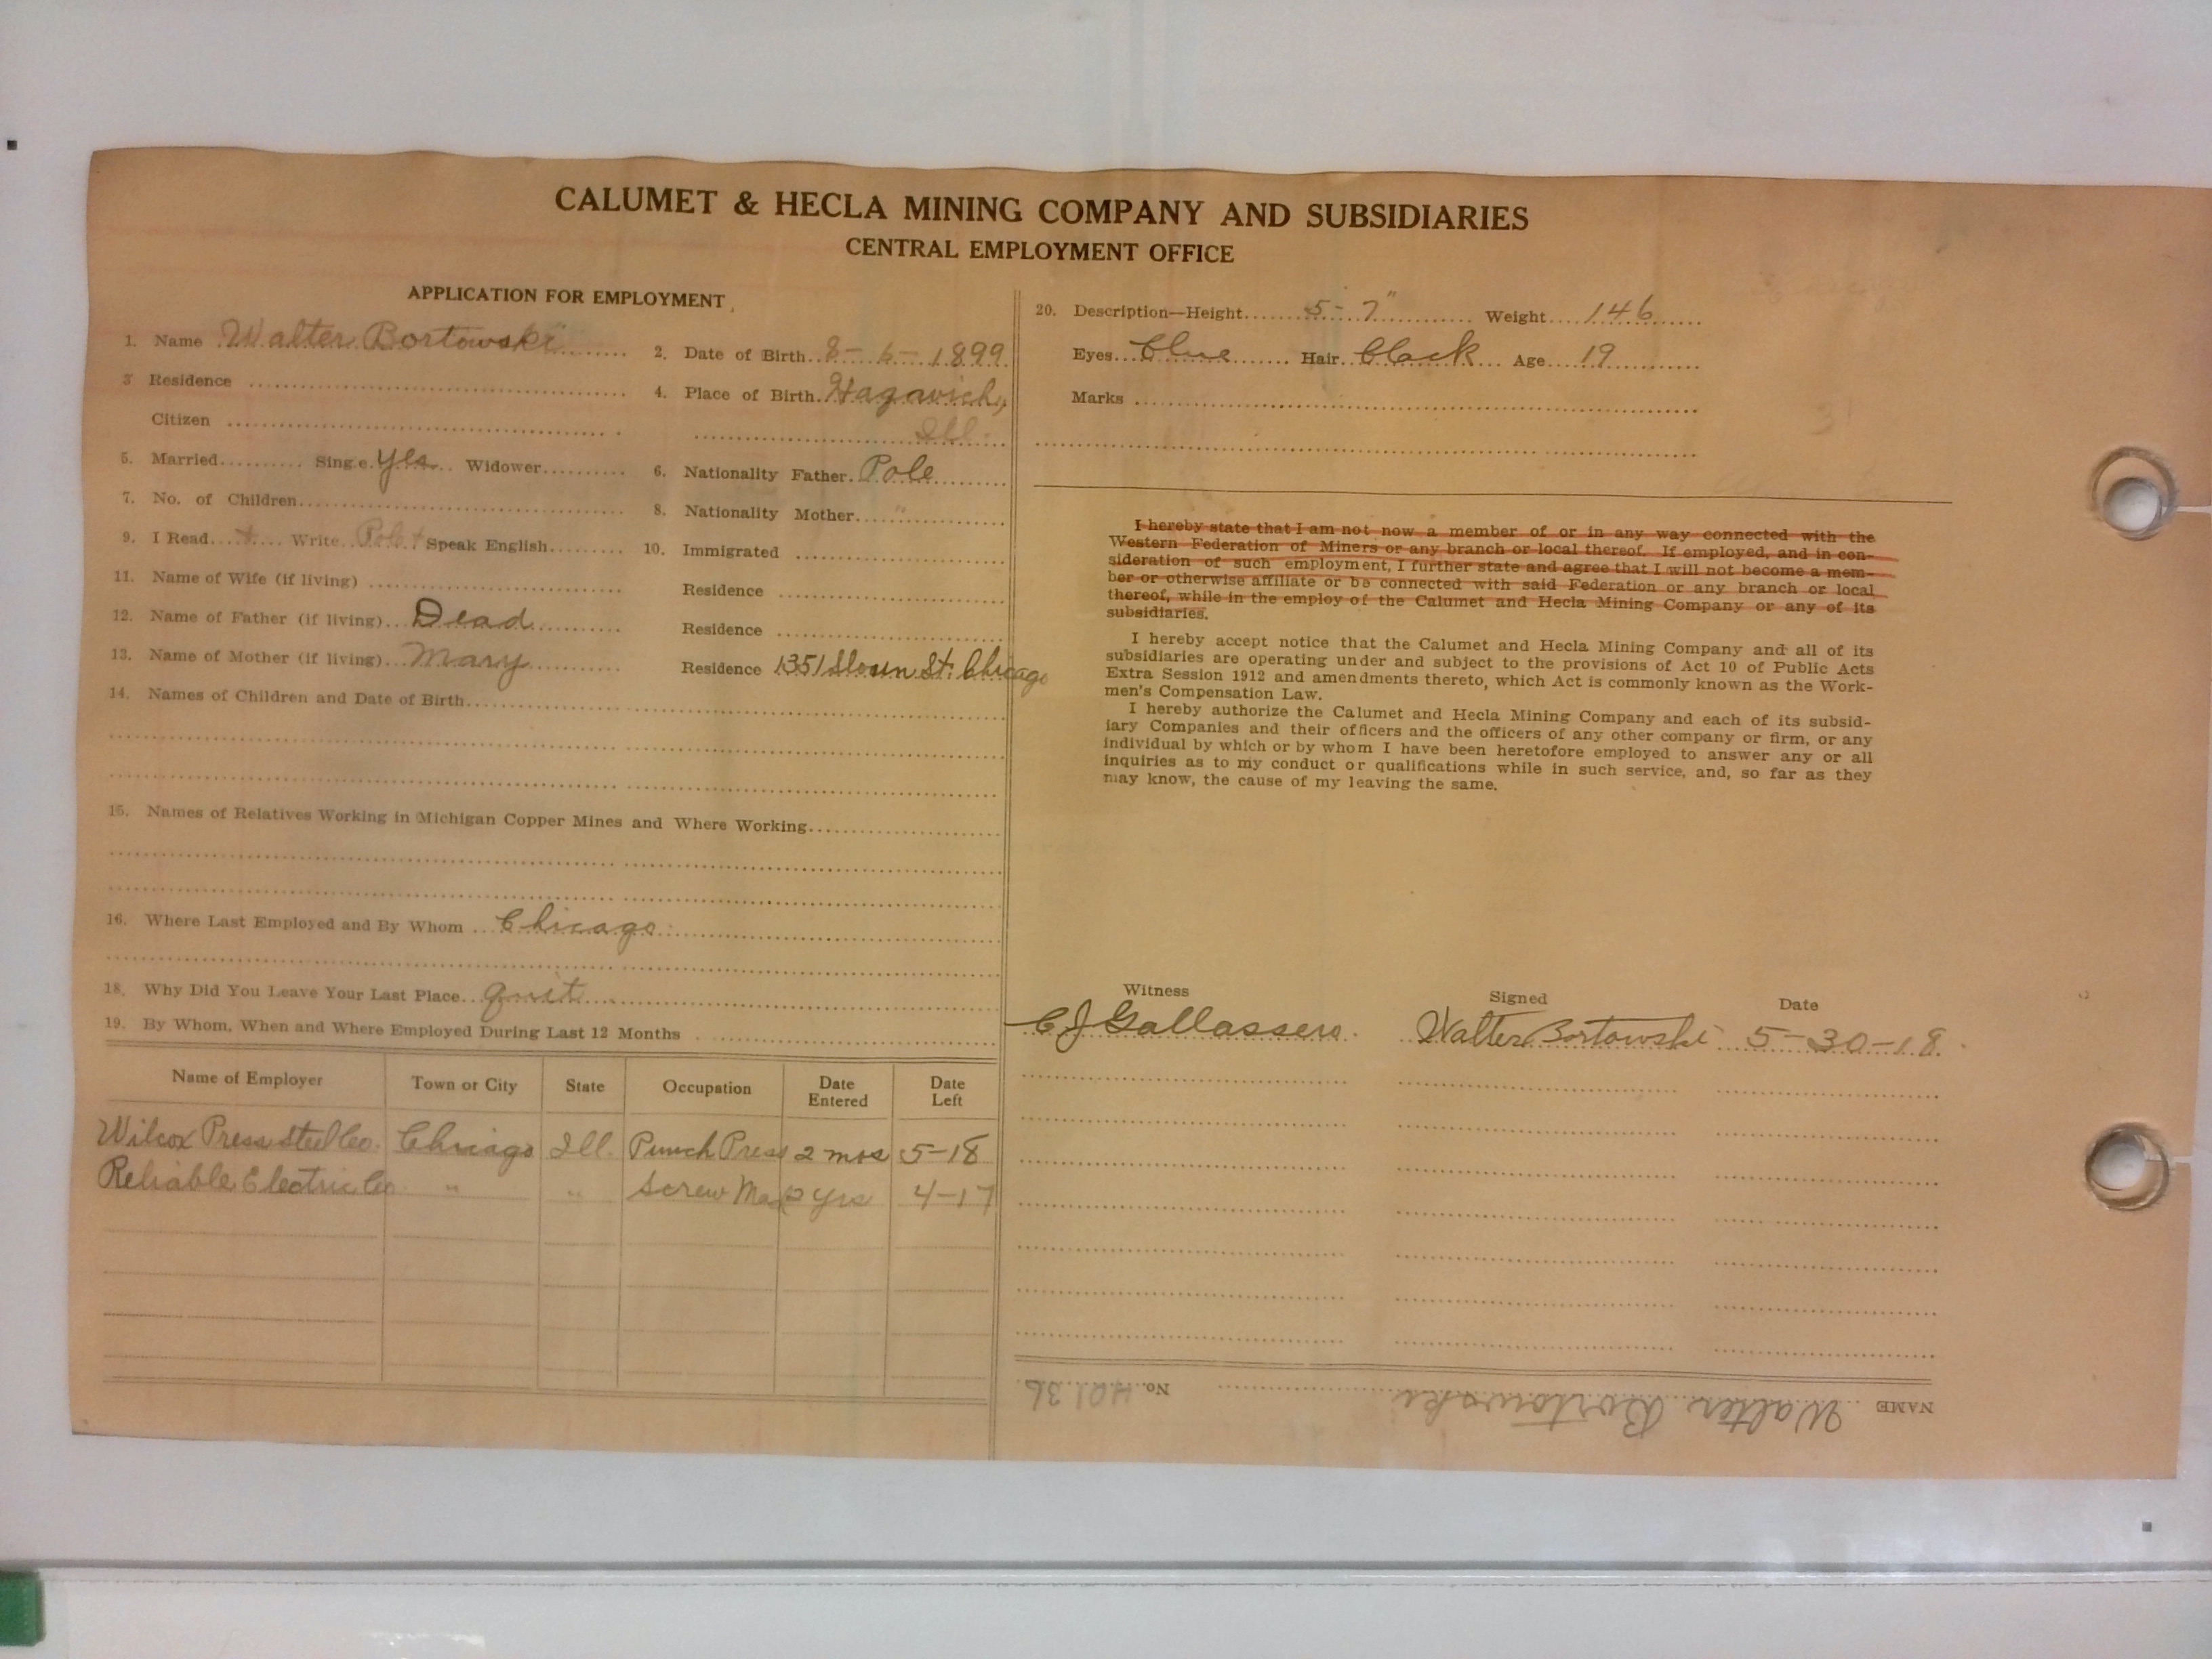 CALUMET & HECLA MINING COMPANY AND SUBSIDIARIES
CENTRAL EMPLOYMENT OFFICE
APPLICATION FOR EMPLOYMENT
1. Name Walter Bortowski
2. Date of Birth 8-6-1899
3 Residence
4. Place of Birth Hagawich,
Citizen
Ill.
5. Married Sing.e. Yes Widower
6. Nationality Father. Pole
7. No. of Children
8. Nationality Mother "
9. I Read Write Speak English
10. Immigrated
11. Name of Wife (if living)
Residence
12. Name of Father (if living) Dead
Residence
13. Name of Mother (if living) Mary
Residence 1351 St. Chicago
14. Names of Children and Date of Birth
15. Names of Relatives Working in Michigan Copper Mines and Where Working
16. Where Last Employed and By Whom Chicago
18. Why Did You Leave Your Last Place quit
19. By Whom, When and Where Employed During Last 12 Months
Name of Employer Town or City State Occupation Date Entered Date Left
Wilcox Press Steel Co. Chicago Ill. Punch Press 2 mos 5-18
Reliable Electric Co " " Screw Mach 2 yrs 4-17
20. Description—Height 5-7" Weight 146
Eyes Blue Hair Black Age 19
Marks
I hereby state that I am not now a member of or in any way connected with the
Western Federation of Miners or any branch or local thereof. If employed, and in con-
sideration of such employment, I further state and agree that I will not become a mem-
ber or otherwise affiliate or be connected with said Federation or any branch or local
thereof, while in the employ of the Calumet and Hecla Mining Company or any of its
subsidiaries.
I hereby accept notice that the Calumet and Hecla Mining Company and all of its
subsidiaries are operating under and subject to the provisions of Act 10 of Public Acts
Extra Session 1912 and amendments thereto, which Act is commonly known as the Work-
men's Compensation Law.
I hereby authorize the Calumet and Hecla Mining Company and each of its subsid-
iary Companies and their officers and the officers of any other company or firm, or any
individual by which or by whom I have been heretofore employed to answer any or all
inquiries as to my conduct or qualifications while in such service, and, so far as they
may know, the cause of my leaving the same.
Witness Signed Date
C J Gallassero. Walter Bortowski 5-30-18.
NAME Walter Bortowski No. 40136